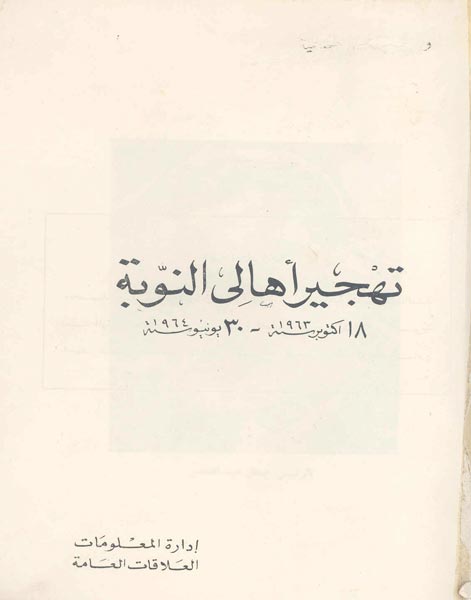 تهجير أهالى النوبة
١٨ اكتوبر سنة ١٩٦٣ - ٣٠ يونيو سنة ١٩٦٤
إدارة المعلومات
العلاقات العامة